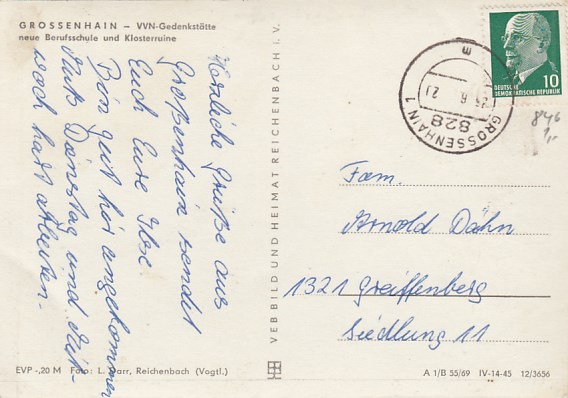 GROSSENHAIN – VVN-Gedenkstätte
neue Berufsschule und Klosterruine
Herzliche Grüße aus
Großenhain sendet
Euch Eure Ilse
Bin gut hir angekommen
Muß Dienstag und
noch hart arbeiten.
VEB BILD UND HEIMAT REICHENBACH I. V.
DEUTSCHE
DEMOKRATISCHE REPUBLIK
10
GROSSENHAIN 1
828
846
1,-
Fam.
Arnold Dähn
1321 Greiffenberg
Siedlung 11
EVP -,20 M Foto: L. Darr, Reichenbach (Vogtl.)
A 1/B 55/69 IV-14-45 12/3656